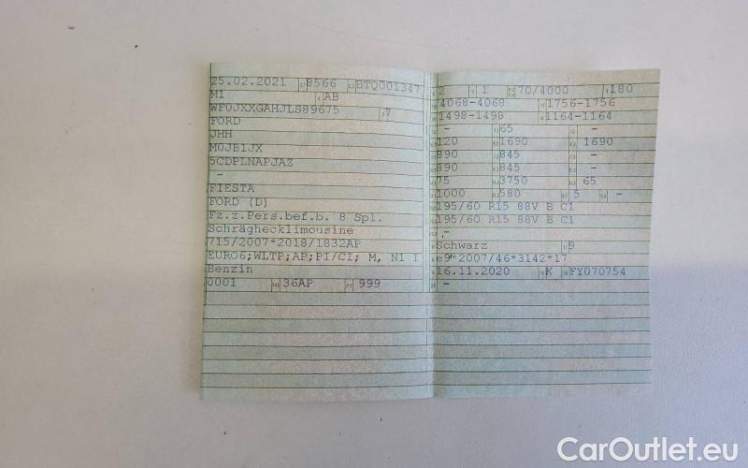 25.02.2021 8566 BTQ001347
M1 AB
WF0JXXGAHJLS89675 7
FORD
JHH
M0JB1JX
5CDPLNAPJAZ
-
FIESTA
FORD (D)
Fz.z.Pers.bef.b. 8 Spl.
Schräghecklimousine
715/2007*2018/1832AP
EURO6;WLTP;AP;PI/CI; M, N1 I
Benzin
0001 36AP 999
2 1 70/4000 180
4068-4068 1756-1756
1498-1498 1164-1164
- 65 -
120 1690 1690
890 845 -
890 845 -
75 3750 65
1000 580 5 -
195/60 R15 88V B C1
195/60 R15 88V B C1
-
Schwarz 9
e9*2007/46*3142*17
16.11.2020 K FY070754
-
CarOutlet.eu